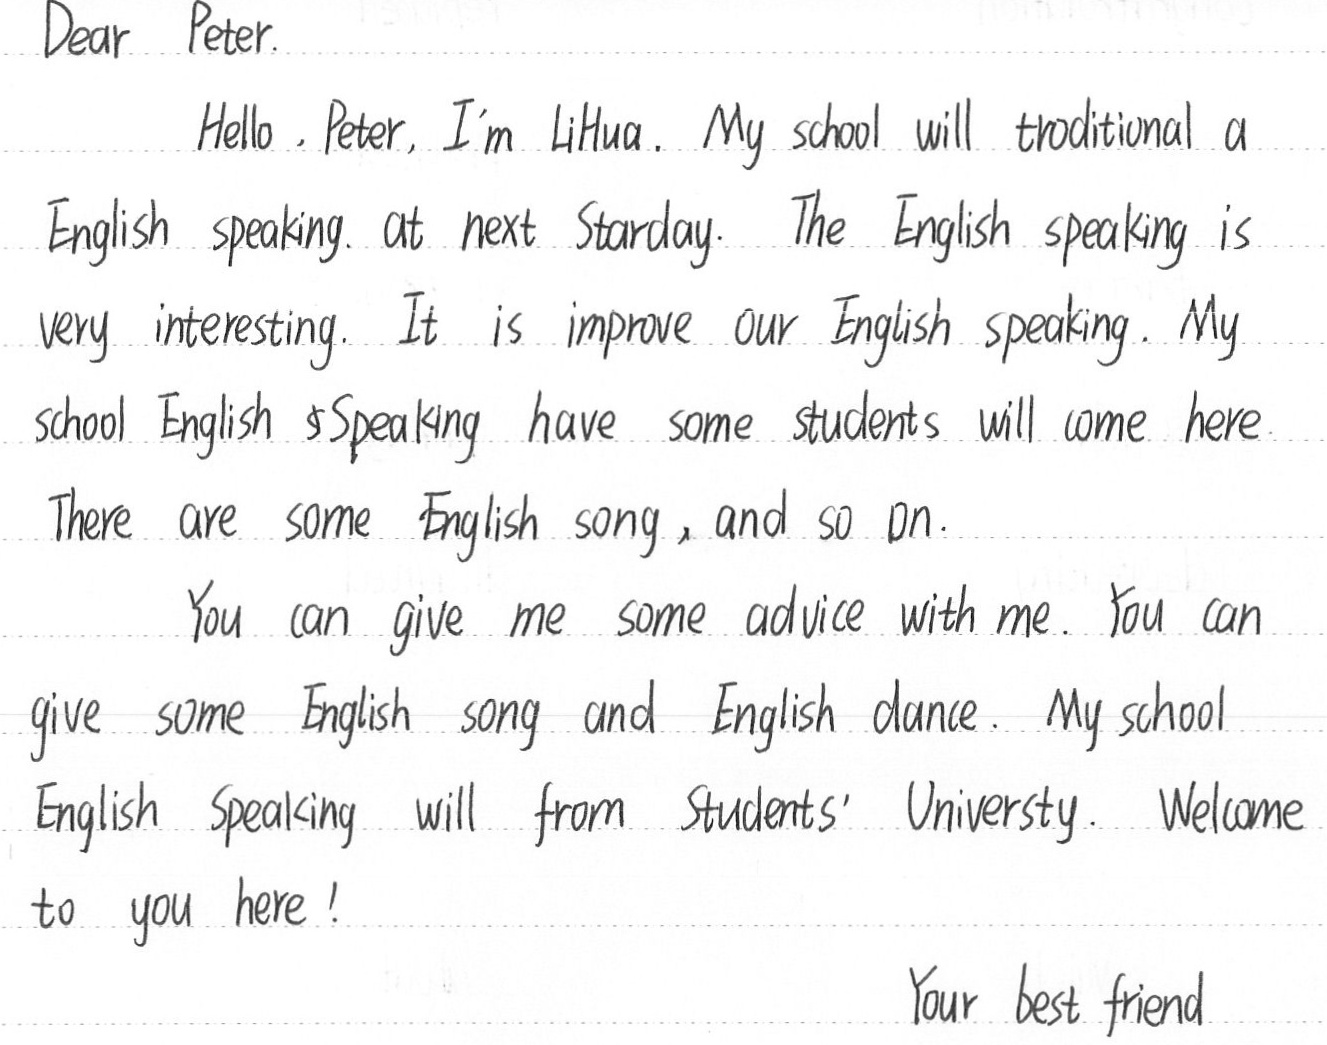 Dear Peter.
Hello, Peter, I'm LiHua. My school will troditional a
English speaking. at next Starday. The English speaking is
very interesting. It is improve our English speaking. My
school English Speaking have some students will come here.
There are some English song, and so on.
You can give me some advice with me. You can
give some English song and English dance. My school
English Speaking will from Students' Universty. Welcome
to you here!
Your best friend